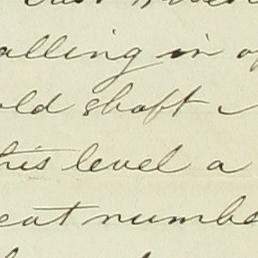 alling in
old shaft
this level a
eat numbe